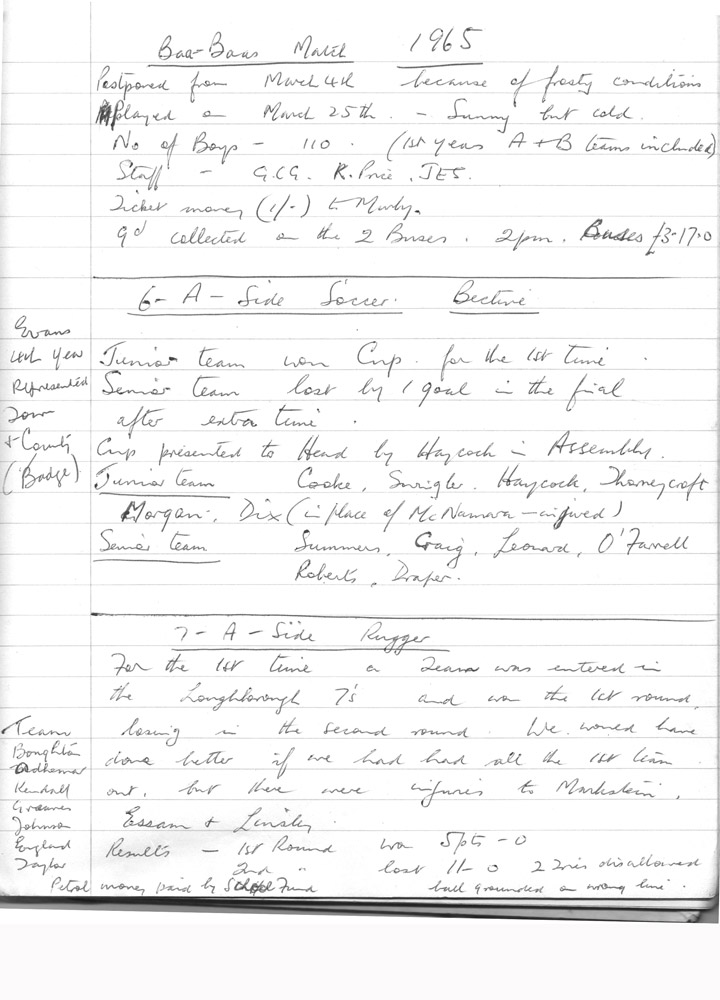 Baa-Baas Match 1965
Postponed from March 4th because of frosty conditions
played on March 25th. - Sunny but cold.
No of Boys - 110. (1st years A + B teams included)
Staff - G.C.G. K. Price. JES.
Ticket money (1/-) to
9d collected on the 2 Buses. 2pm. Buses £3-17-0
6-A-Side Soccer. Bective
Junior team won Cup. for the 1st time.
Senior team lost by 1 goal in the final
after extra time.
Cup presented to Head by Haycock in Assembly.
Junior team Cooke, Haycock, Thorneycroft
Morgan, Dix (in place of McNamara - injured)
Senior team Summers, Craig, Leonard, O'Farrell
Roberts, Draper.
Evans
4th Year
Represented
Town
+ County
(Badge)
7-A-Side Rugger
For the 1st time a Team was entered in
the Loughborough 7's and won the 1st round,
losing in the second round. We would have
done better if we had had all the 1st team
out, but there were injuries to Markstein,
Essam + Linsley.
Results - 1st Round won 5pts - 0
2nd " lost 11-0 2 Tries disallowed
ball grounded on wrong line.
Team
Boughton
Kendall
Greaves
Johnson
England
Taylor
Petrol money paid by School Fund